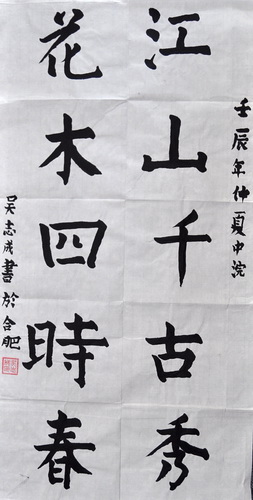 壬辰年仲夏中浣
江山千古秀
花木四時春
吴志成書於合肥